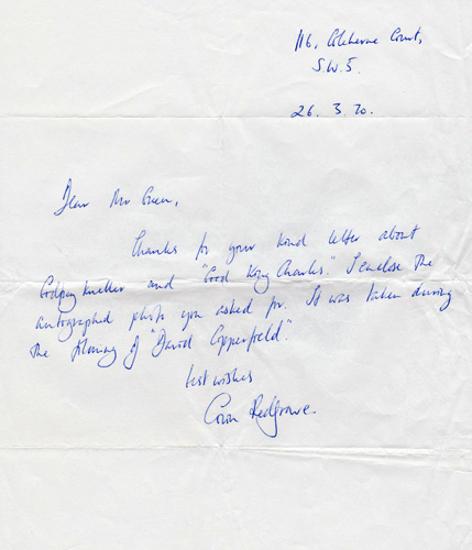 116, Coleherne Court,
S.W.5.
26. 3. 70.
Dear Mr Green,
Thanks for your kind letter about
Godfrey Kneller and "Good King Charles". I enclose the
autographed photo you asked for. It was taken during
the filming of "David Copperfield".
Best wishes
Corin Redgrave.